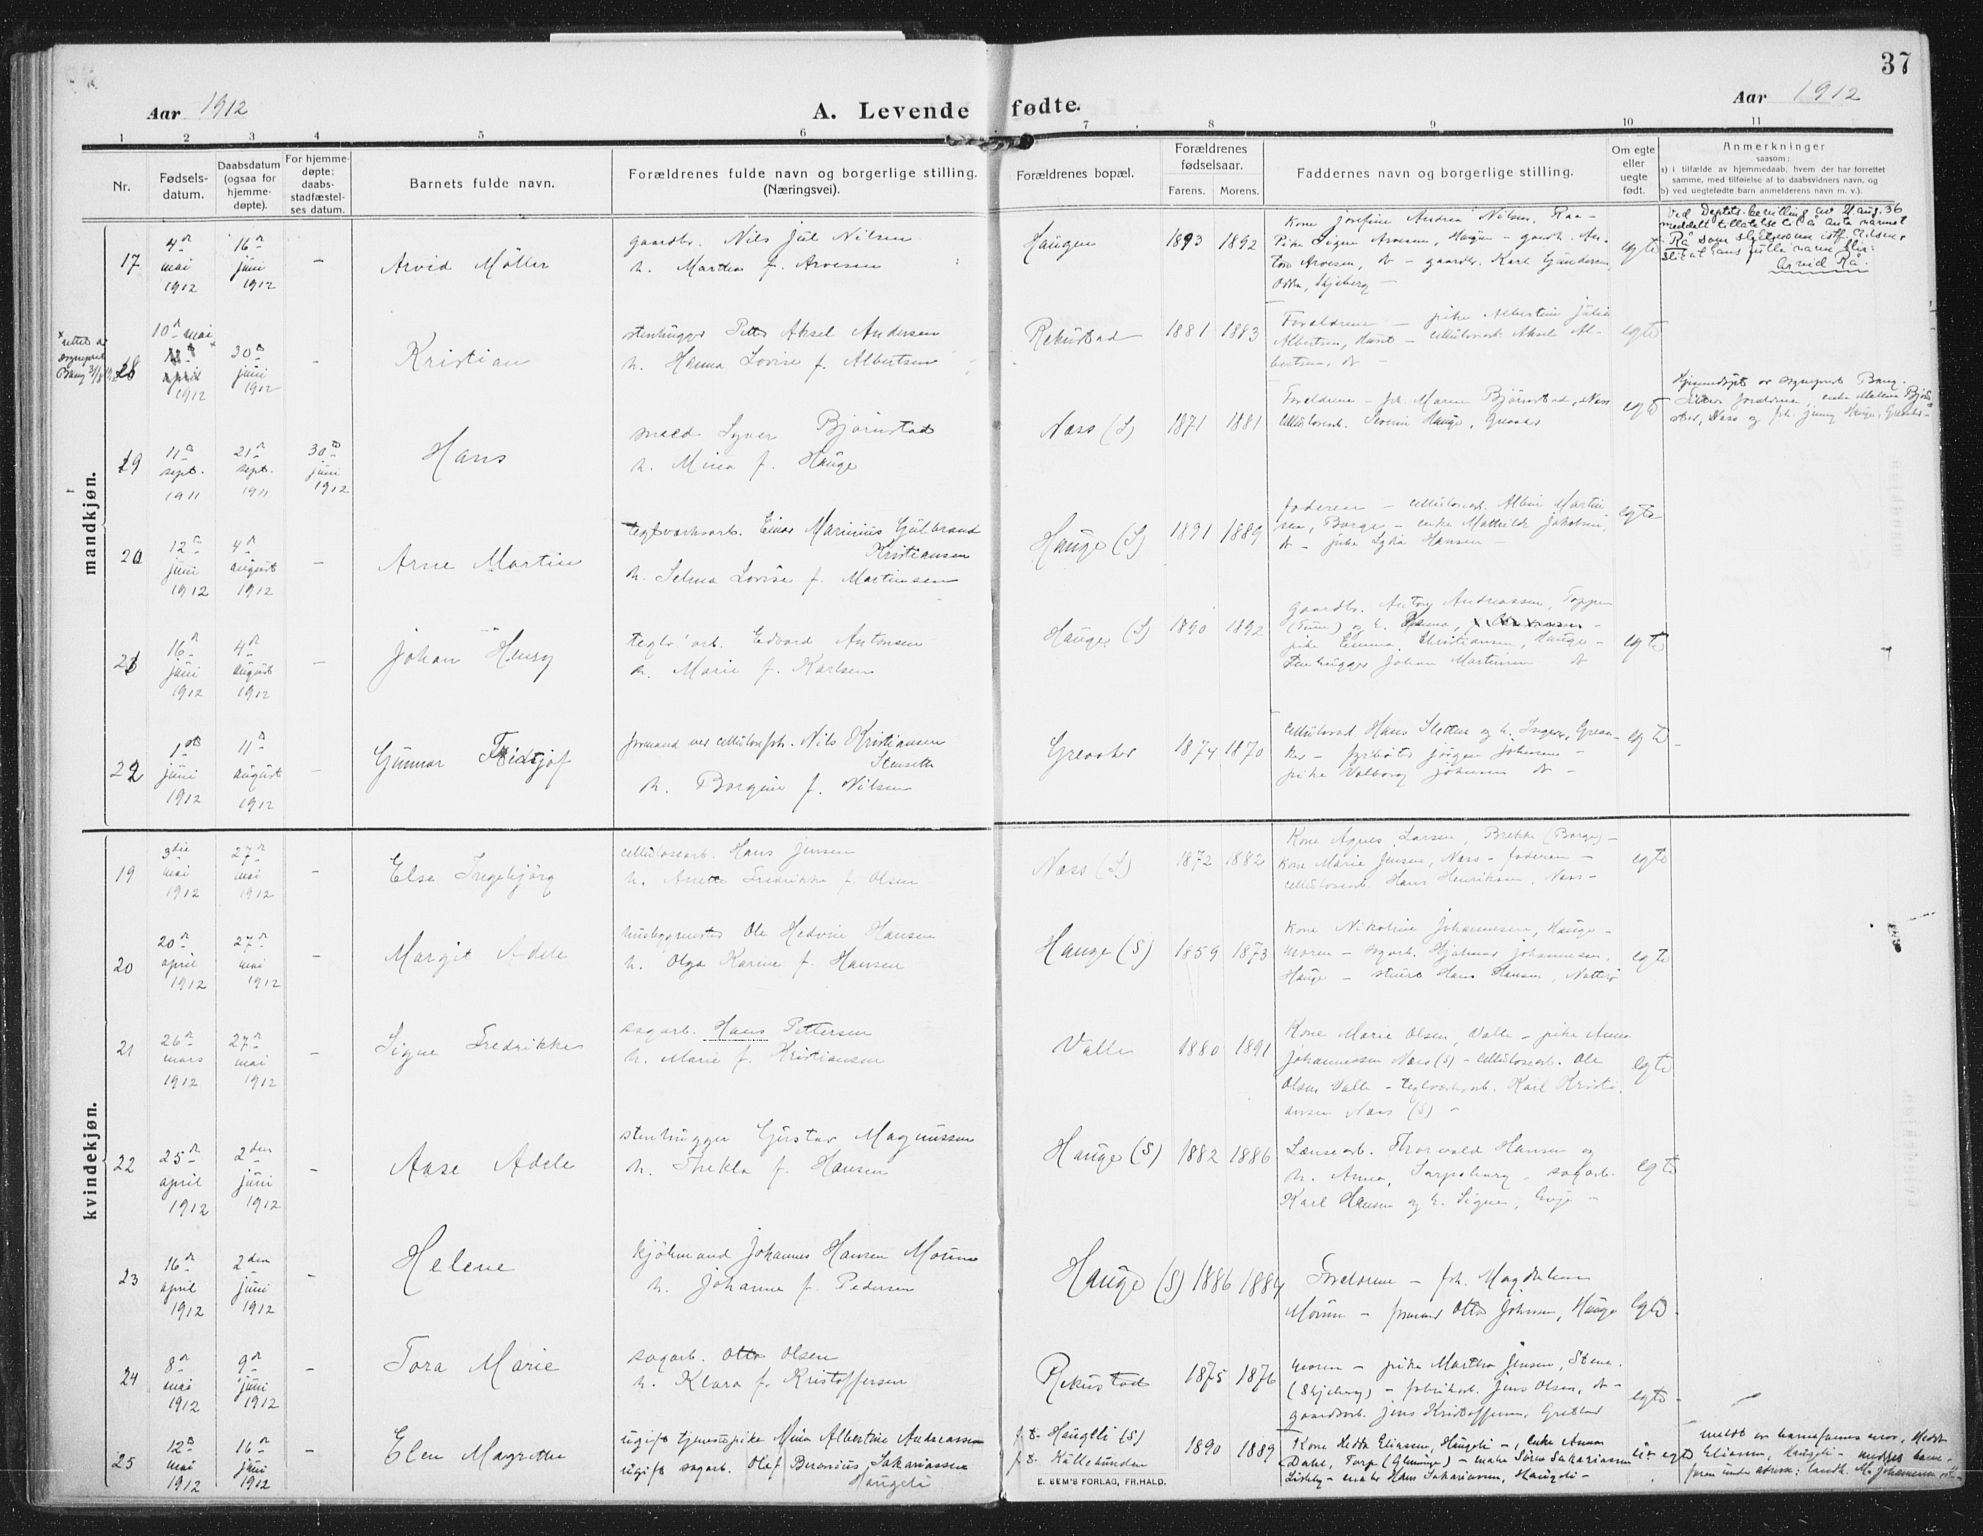 37
Aar 1912
A. Levende fødte.
Aar 1912
1 2 3 4 5 6 7 8 9 10 11
Nr.
Fødsels-
datum.
Daabsdatum
(ogsaa for
hjemme-
døpte).
For hjemme-
døpte:
daabs-
stadfæstel-
ses datum.
Barnets fulde navn.
Forældrenes fulde navn og borgerlige stilling.
(Næringsvei).
Forældrenes bopæl.
Forældrenes
fødselsaar.
Farens. Morens.
Faddernes navn og borgerlige stilling.
Om egte
eller
uegte
født.
Anmerkninger
saasom:
a) i tilfælde av hjemmedaab, hvem der har forrettet
samme, med tilføielse af to daabsvidners navn, og
b) ved uegtefødte barn anmelderens navn m. v.).
mandkjøn.
17
4de
mai
1912
16de
juni
1912
–
Arvid Møller
gaardbr. Nils Jul Nilsen
h. Martha f. Arvesen
Haugen
1893 1892
Kone Josefine Andrea Nilsen, Raa –
Pike Signe Arvesen, Haugen – gaardb. An-
ton Arvesen, do – gaardbr. Karl Gundersen
Skjeberg –
egte
Rå som slektsnavn istf. Nilsen,
slik at hans fulle navn blir
Arvid Rå.
18
10de mai
april
1912
30te
juni
1912
–
Kristian
stenhugger Petter Aksel Andersen
h. Hanna Lovise f. Albertsen
Rekustad
1881 1883
Forældrene – pike Albertine Julie
Albertsen, – cellulosearb. Aksel Al-
bertsen, do –
egte
19
11te
sept.
1911
21de
sept.
1911
30te
juni
1912
Hans
Syver Bjørnstad
h. Mina f. Hauge
Næss (S)
1871 1881
Forældrene – frk. Maren Bjørnstad, Næss
cellulosearb. Severin Hauge, Greaaker
egte
Hjemmedøpt av sogneprest Bang.
20
12te
juni
1912
4de
august
1912
–
Arne Martin
teglverksarb. Einar Marinius Gulbrand
Kristiansen
h. Selma Lovise f. Martinsen
Hauge (S)
1891 1889
faderen – cellulosearb. Albin Martin
sen, Borge – enke Mathilde Jakobsen,
do – pike Lydia Hansen –
egte
21
16de
juni
1912
4de
august
1912
–
Johan Henry
teglv.arb. Edvard Antonsen
h. Marie f. Karlsen
Hauge (S)
1890 1892
Gaardbr. Antony Andreassen, Toppen
(Tune) og h.
pike Emma Christiansen, Hauge –
stenhugger Johan Martinsen do
egte
22
1ste
juni
1912
11te
august
1912
–
Gunnar Fridtjof
formand ved cellulosefabr. Nils Kristiansen
Stenseth
h. Borgine f. Nilsen
Greaaker
1874 1870
cellulosearb. Hans Sletten og h. Inga, Greaa-
ker – fyrbøter Jørgen Johansen –
pike Valborg Johnsen do –
egte
kvindekjøn.
19
3die
mai
1912
27de
mai
1912
–
Else Ingebjørg
cellulosearb. Hans Jensen
h. Anette Fredrikke f. Olsen
Næss (S)
1872 1882
Kone Agnes Larsen, Brekke (Borge) –
kone Marie Jensen, Næss – faderen –
cellulosearb. Hans Henriksen, Næss –
egte
20
20de
april
1912
27de
mai
1912
–
Margit Adele
husbygmester Ole Hedvin Hansen
h. Olga Karine f. Hansen
Hauge (S)
1859 1873
Kone Nikoline Johannesen, Hauge –
moren – sagarb. Hjalmar Johannesen,
Hauge – Hans Hansen,
egte
21
26de
mars
1912
27de
mai
1912
–
Signe Fredrikke
sagarb. Hans Pettersen
h. Marie f. Kristiansen
Valle
1880 1891
Kone Marie Olsen, Valle – pike Anna
Johannessen Næss (S) – cellulosearb. Ole
Olsen Valle – teglverksarb. Karl Kristi-
ansen Næss (S) –
egte
22
25de
april
1912
2den
juni
1912
–
Aase Adele
stenhugger Gustav Magnussen
h. Thekla f. Hansen
Hauge (S)
1882 1886
Lænsearb. Thorvald Hansen og
h. Anna, Sarpsborg – sagarb.
Karl Hansen og h. Signe, –
egte
23
16de
april
1912
2den
juni
1912
–
Helene
kjøbmand Johannes Hansen Moum
h. Johanne f. Pedersen
Hauge (S)
1886 1884
Forældrene – frk. Magdalena
Moum – formand Otto Johnsen, Hauge
egte
24
8de
mai
1912
9de
juni
1912
–
Tora Marie
sagarb. Otto Olsen
h. Klara f. Kristoffersen
Rekustad
1875 1876
moren – pike Martha Jensen, Stene
(Skjeberg) – fabrikarb. Jens Olsen, do –
gaardsarb. Jens Kristoffersen, Gretland
egte
25
12te
mai
1912
16de
juni
1912
–
Elen Margrethe
ugift tjenestepike Mina Albertine Andreassen
ugift sagarb. Olaf Bernius Sakariassen
Haugeli
f. t. Haugeli (S)
f. t. Kullebunden
1890 1889
Kone Hedda Eliasen, Haugeli – enke Anna
Dahl, Torp – Søren Sakariassen
– Hans Sakariassen, Haugeli –
uegte
meldt av barnefarens mor, Hedda
Eliasen, Haugeli –
E. SEM'S FORLAG, FR.HALD.